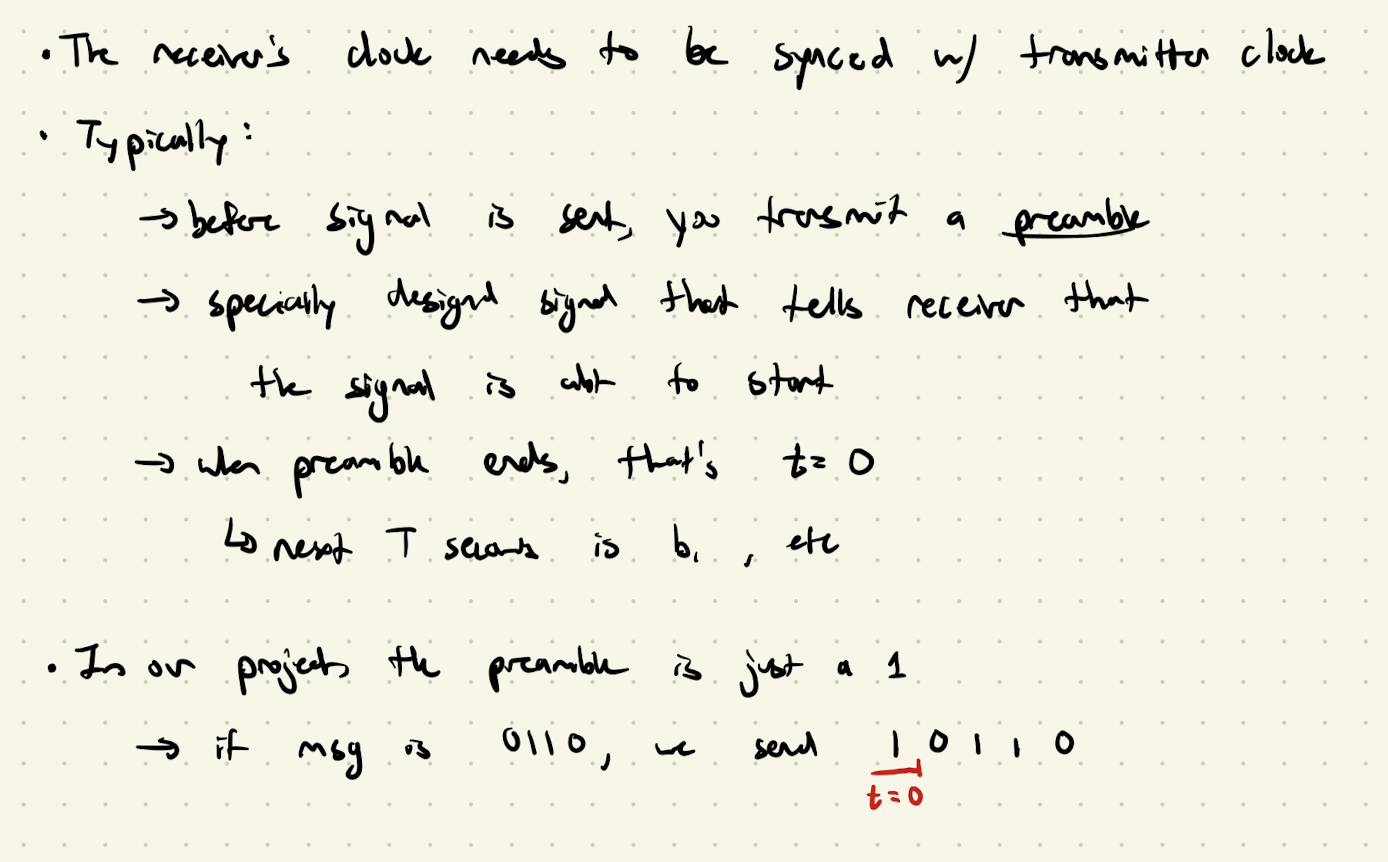 • The receiver's clock needs to be synced w/ transmitter clock
• Typically:
→ before signal is sent, you transmit a preamble
→ specially designed signal that tells receiver that
the signal is abt to start
→ when preamble ends, that's t=0
↳ next T seconds is b₁, etc
• In our projects the preamble is just a 1
→ if msg is 0110, we send 1 0 1 1 0
t=0